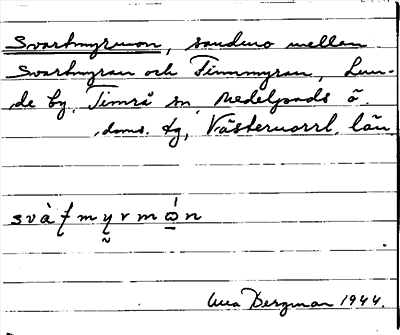 Svartmyrmon, sandmo mellan
Svartmyran och Timmyran, Lun-
de by, Timrå sn, Medelpads ö.
doms. sg, Västernorrl. län
s v à ʈ m y r m ó n
Bergman 1944.